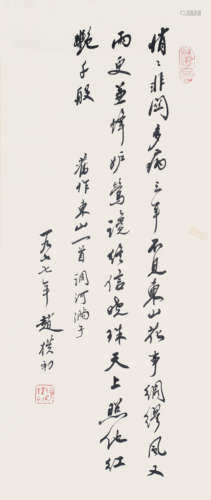 悄々非關多病三年不見東山花事綢繆風又
雨更兼蜂妒鶯讒終信曉珠天上照他紅
艷千般
舊作東山一首調河滿子
一九七七年 趙樸初